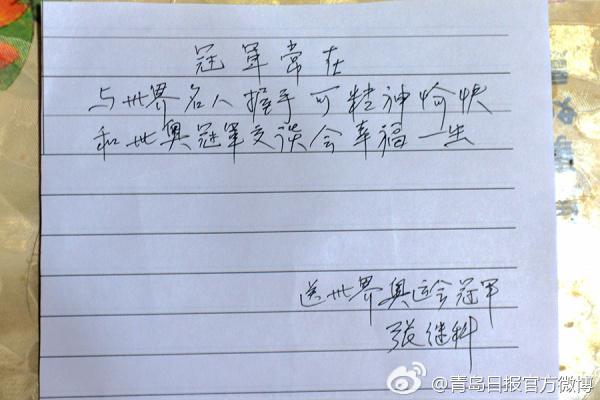 冠军常在
与世界名人握手可精神愉快
和世奥冠军交谈会幸福一生
送世界奥运会冠军
张继科
@青岛日报官方微博